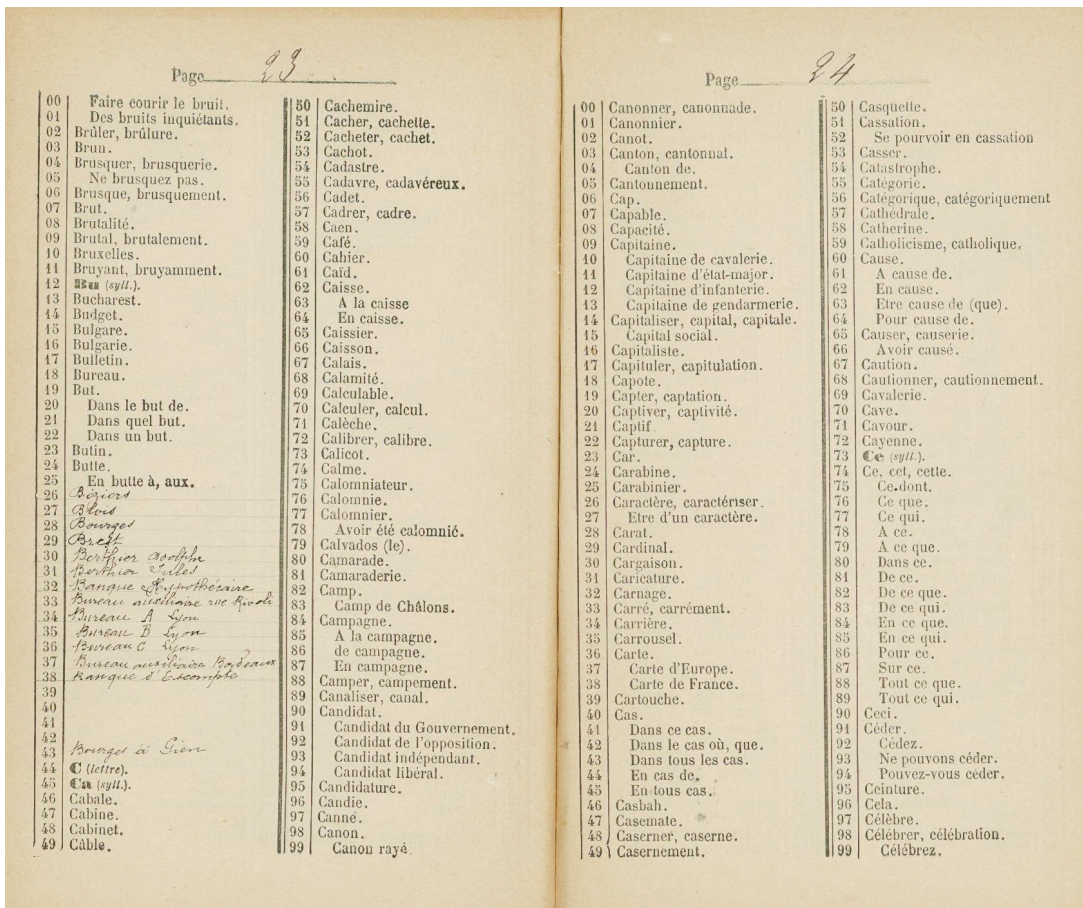 Page 23
00 Faire courir le bruit.
01 Des bruits inquiétants.
02 Brûler, brûlure.
03 Brun.
04 Brusquer, brusquerie.
05 Ne brusquez pas.
06 Brusque, brusquement.
07 Brut.
08 Brutalité.
09 Brutal, brutalement.
10 Bruxelles.
11 Bruyant, bruyamment.
12 Bu (syll.).
13 Bucharest.
14 Budget.
15 Bulgare.
16 Bulgarie.
17 Bulletin.
18 Bureau.
19 But.
20 Dans le but de.
21 Dans quel but.
22 Dans un but.
23 Butin.
24 Butte.
25 En butte à, aux.
26 Béziers
27 Blois
28 Bourges
29 Brest
30 Berthier Adolphe
31 Berthier Jules
32 Banque Hypothécaire
33 Bureau auxiliaire rue Rivoli
34 Bureau A Lyon
35 Bureau B Lyon
36 Bureau C Lyon
37 Bureau auxiliaire Bordeaux
38 Banque d'Escompte
39
40
41
42
43 Bourges à Gien
44 C (lettre).
45 Ca (syll.).
46 Cabale.
47 Cabine.
48 Cabinet.
49 Câble.
50 Cachemire.
51 Cacher, cachette.
52 Cacheter, cachet.
53 Cachot.
54 Cadastre.
55 Cadavre, cadavéreux.
56 Cadet.
57 Cadrer, cadre.
58 Caen.
59 Café.
60 Cahier.
61 Caïd.
62 Caisse.
63 A la caisse
64 En caisse.
65 Caissier.
66 Caisson.
67 Calais.
68 Calamité.
69 Calculable.
70 Calculer, calcul.
71 Calèche.
72 Calibrer, calibre.
73 Calicot.
74 Calme.
75 Calomniateur.
76 Calomnie.
77 Calomnier.
78 Avoir été calomnié.
79 Calvados (le).
80 Camarade.
81 Camaraderie.
82 Camp.
83 Camp de Châlons.
84 Campagne.
85 A la campagne.
86 de campagne.
87 En campagne.
88 Camper, campement.
89 Canaliser, canal.
90 Candidat.
91 Candidat du Gouvernement.
92 Candidat de l'opposition.
93 Candidat indépendant.
94 Candidat libéral.
95 Candidature.
96 Candie.
97 Canne.
98 Canon.
99 Canon rayé.
Page 24
00 Canonner, canonnade.
01 Canonnier.
02 Canot.
03 Canton, cantonnal.
04 Canton de.
05 Cantonnement.
06 Cap.
07 Capable.
08 Capacité.
09 Capitaine.
10 Capitaine de cavalerie.
11 Capitaine d'état-major.
12 Capitaine d'infanterie.
13 Capitaine de gendarmerie.
14 Capitaliser, capital, capitale.
15 Capital social.
16 Capitaliste.
17 Capituler, capitulation.
18 Capote.
19 Capter, captation.
20 Captiver, captivité.
21 Captif
22 Capturer, capture.
23 Car.
24 Carabine.
25 Carabinier.
26 Caractère, caractériser.
27 Etre d'un caractère.
28 Carat.
29 Cardinal.
30 Cargaison.
31 Caricature.
32 Carnage.
33 Carré, carrément.
34 Carrière.
35 Carrousel.
36 Carte.
37 Carte d'Europe.
38 Carte de France.
39 Cartouche.
40 Cas.
41 Dans ce cas.
42 Dans le cas où, que.
43 Dans tous les cas.
44 En cas de.
45 En tous cas.
46 Casbah.
47 Casemate.
48 Caserner, caserne.
49 Casernement.
50 Casquette.
51 Cassation.
52 Se pourvoir en cassation
53 Casser.
54 Catastrophe.
55 Catégorie.
56 Catégorique, catégoriquement
57 Cathédrale.
58 Catherine.
59 Catholicisme, catholique.
60 Cause.
61 A cause de.
62 En cause.
63 Etre cause de (que).
64 Pour cause de.
65 Causer, causerie.
66 Avoir causé.
67 Caution.
68 Cautionner, cautionnement.
69 Cavalerie.
70 Cave.
71 Cavour.
72 Cayenne.
73 Ce (syll.).
74 Ce, cet, cette.
75 Ce dont.
76 Ce que.
77 Ce qui.
78 A ce.
79 A ce que.
80 Dans ce.
81 De ce.
82 De ce que.
83 De ce qui.
84 En ce que.
85 En ce qui.
86 Pour ce.
87 Sur ce.
88 Tout ce que.
89 Tout ce qui.
90 Ceci.
91 Céder.
92 Cédez.
93 Ne pouvons céder.
94 Pouvez-vous céder.
95 Ceinture.
96 Cela.
97 Célèbre.
98 Célébrer, célébration.
99 Célébrez.